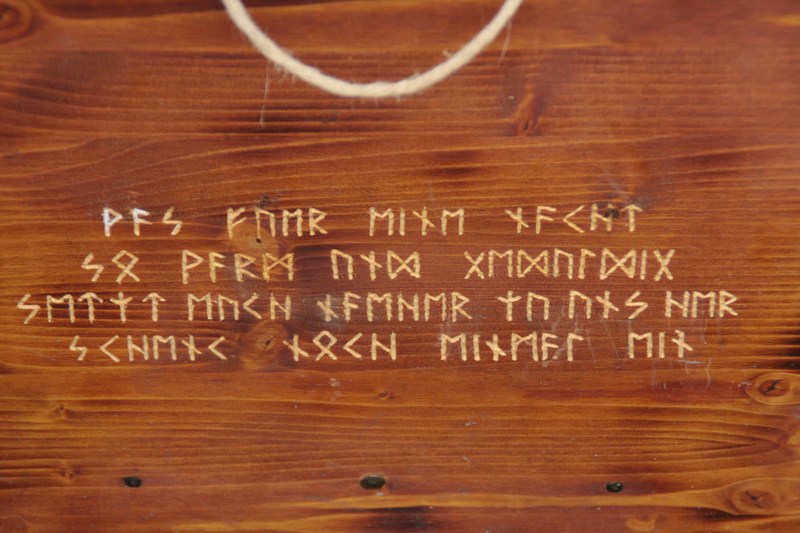 ᚹᚨᛋ ᚠᚢᛖᚱ ᛖᛁᚾᛖ ᚾᚨᚲᚺᛏ
ᛋᛟ ᚹᚨᚱᛗ ᚢᚾᛞ ᚷᛖᛞᚢᛚᛞᛁᚷ
ᛋᛖᛏᛉᛏ ᛖᚢᚲᚺ ᚾᚨᛖᚺᛖᚱ ᛉᚢ ᚢᚾᛋ ᚺᛖᚱ
ᛋᚲᚺᛖᚾᚲ ᚾᛟᚲᚺ ᛖᛁᚾᛗᚨᛚ ᛖᛁᚾ